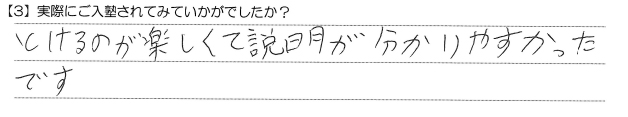 【3】実際にご入塾されてみていかがでしたか？
とけるのが楽しくて説明が分かりやすかった
です